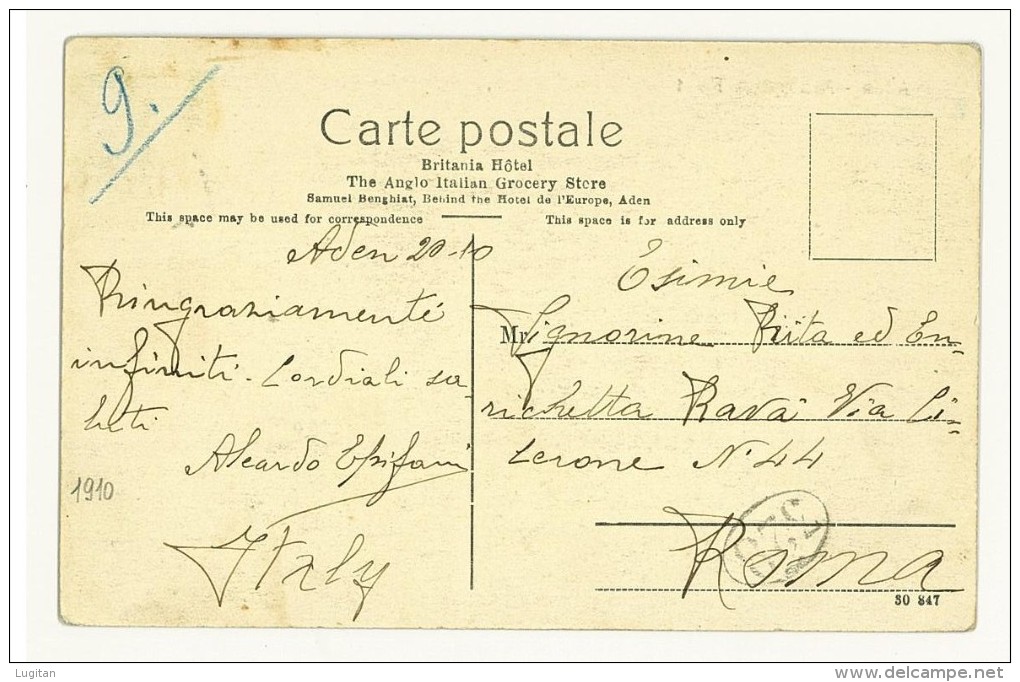 9.
Carte postale
Britania Hôtel
The Anglo Italian Grocery Store
Samuel Benghiat, Behind the Hotel de l'Europe, Aden
This space may be used for correspondence
This space is for address only
Aden 20-10
Ringraziamenti
infiniti. Cordiali sa-
luti
Aleardo Epifani
1910
Italy
Esimie
Mr. Signorine Rita ed En-
richetta Ravà Via Ci-
cerone N. 44
Roma
30 847
Lugitan
www.delcampe.net